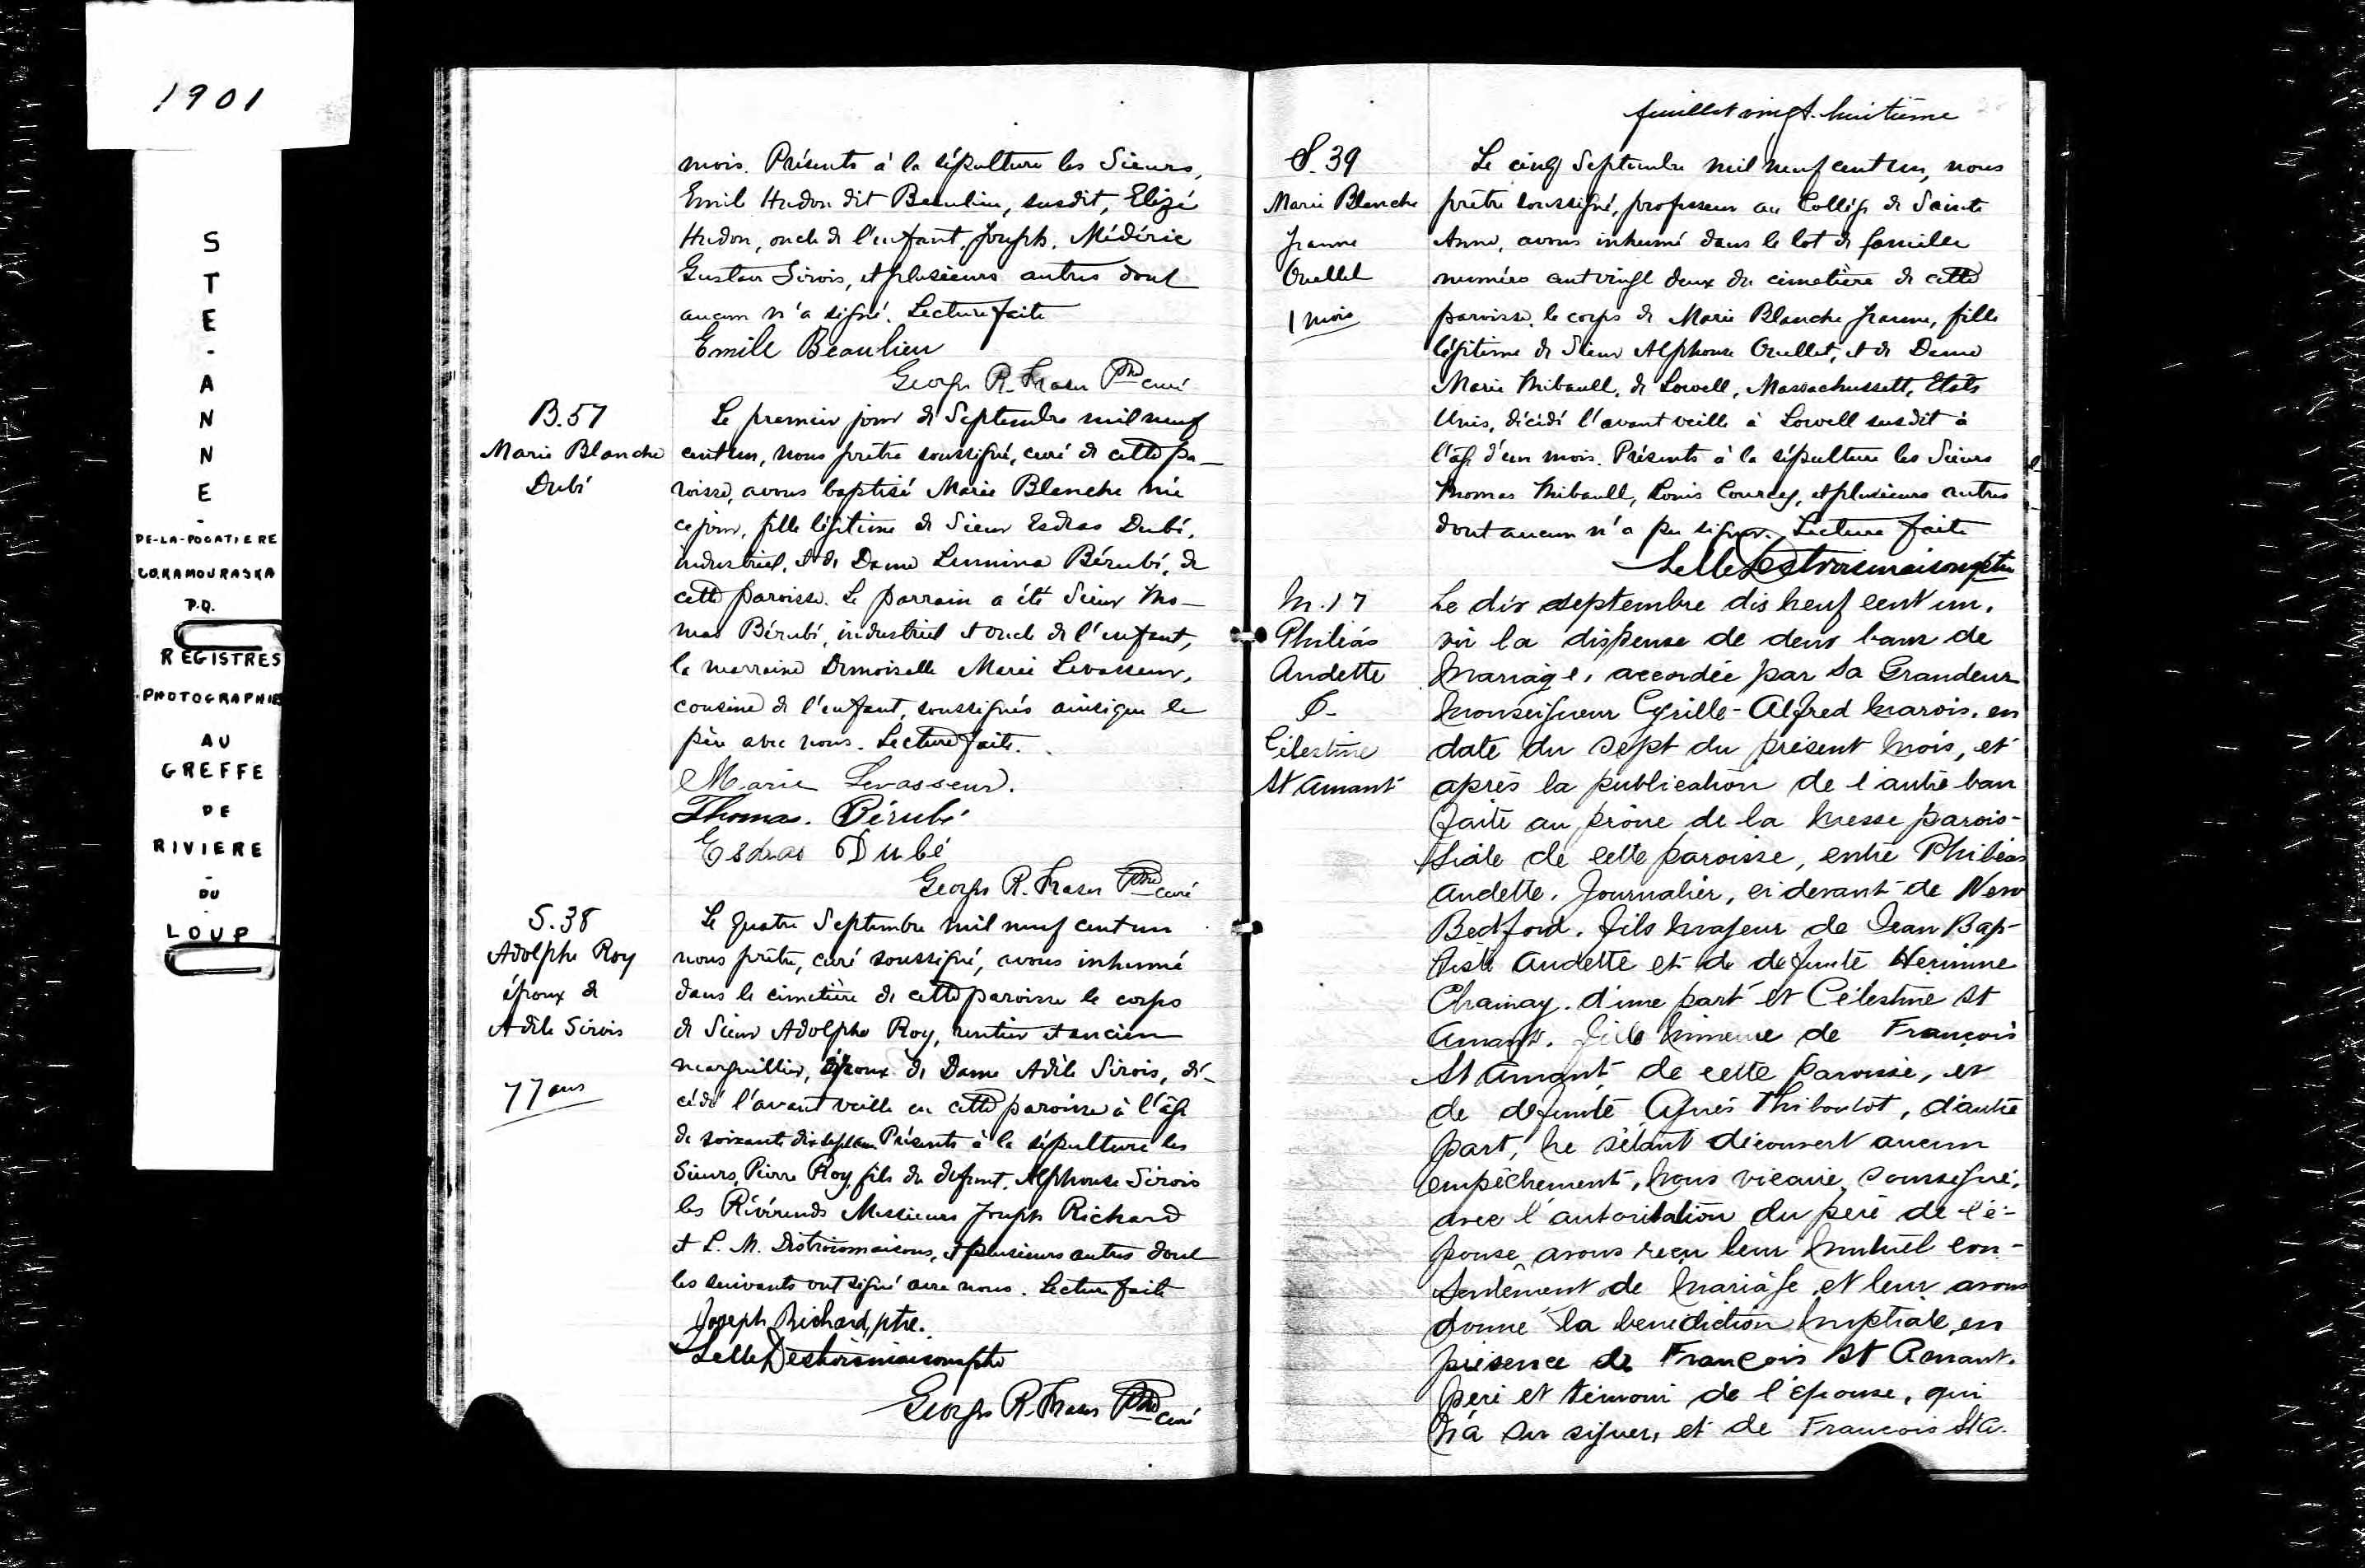 1901
STE-ANNE-
DE-LA-POCATIERE
CO. KAMOURASKA
P.Q.
REGISTRES
PHOTOGRAPHIE
AU
GREFFE
DE
RIVIERE
-
DU
-
LOUP
mois. Présents à la sépulture les Sieurs,
Emile Hudon dit Beaulieu, susdit, Elizé
Hudon, oncle de l'enfant, Joseph, Médéric
Gustave Sirois, et plusieurs autres dont
aucun n'a signé. Lecture faite
Emile Beaulieu
Georges R. Fraser Ptre curé
B.57
Marie Blanche
Dubé
Le premier jour de Septembre mil neuf
cent un, nous prêtre soussigné, curé de cette pa-
roisse, avons baptisé Marie Blanche née
ce jour, fille légitime de Sieur Esdras Dubé,
industriel, et de Dame Lumina Bérubé, de
cette paroisse. Le parrain a été Sieur Tho-
mas Bérubé, industriel et oncle de l'enfant,
la marraine Demoiselle Marie Levasseur,
cousine de l'enfant, soussignés ainsi que le
père avec nous. Lecture faite.
Marie Levasseur.
Thomas. Bérubé
Esdras Dubé
Georges R. Fraser Ptre curé
S.38
Adolphe Roy
époux de
Adèle Sirois
77 ans
Le quatre Septembre mil neuf cent un
nous prêtre, curé soussigné, avons inhumé
dans le cimetière de cette paroisse le corps
de Sieur Adolphe Roy, rentier et ancien
marguillier, époux de Dame Adèle Sirois, dé-
cédé l'avant veille en cette paroisse à l'âge
de soixante dix sept ans. Présents à la sépulture les
Sieurs, Pierre Roy, fils du defunt, Alphonse Sirois
les Révérends Messieurs Joseph Richard
et L. M. Destroismaisons, et plusieurs autres dont
les suivants ont signé avec nous. Lecture faite
Joseph Richard, ptre.
Destroismaisons ptre
Georges R. Fraser Ptre curé
feuillet vingt-huitième
S.39
Marie Blanche
Jeanne
Ouellet
1 mois
Le cinq Septembre mil neuf cent un, nous
prêtre soussigné, professeur au Collége de Sainte
Anne, avons inhumé dans le lot de famille
numéro cent vingt deux du cimetière de cette
paroisse, le corps de Marie Blanche Jeanne, fille
légitime de Sieur Alphonse Ouellet, et de Dame
Marie Thibault, de Lowell, Massachussett, Etats
Unis, décédé l'avant veille à Lowell susdit à
l'âge d'un mois. Présents à la sépulture les Sieurs
Thomas Thibault, Louis Courcy, et plusieurs autres
dont aucun n'a pu signer. Lecture faite
Destroismaisons ptre
M.17
Philéas
Audette
&
Célestine
St Amant
Le dix septembre dix neuf cent un,
vu la dispense de deux bans de
mariage, accordée par Sa Grandeur
Monseigneur Cyrille-Alfred Marois, en
date du sept du présent mois, et
après la publication de l'autre ban
faite au prône de la messe parois-
siale de cette paroisse, entre Philéas
Audette, Journalier, ci devant de New
Bedford, fils majeur de Jean Bap-
tiste Audette et de defunte Hermine
Chainay, d'une part et Célestine St
Amant, fille mineure de François
St Amant de cette paroisse, et
de defunte Agnès Thiboutot, d'autre
part, ne s'étant découvert aucun
empêchement, nous vicaire soussigné,
avec l'autorisation du père de l'é-
pouse, avons reçu leur mutuel con-
sentement de mariage et leur avons
donné la bénédiction nuptiale, en
présence de François St Amant,
père et témoin de l'épouse, qui
n'a su signer, et de François St A.